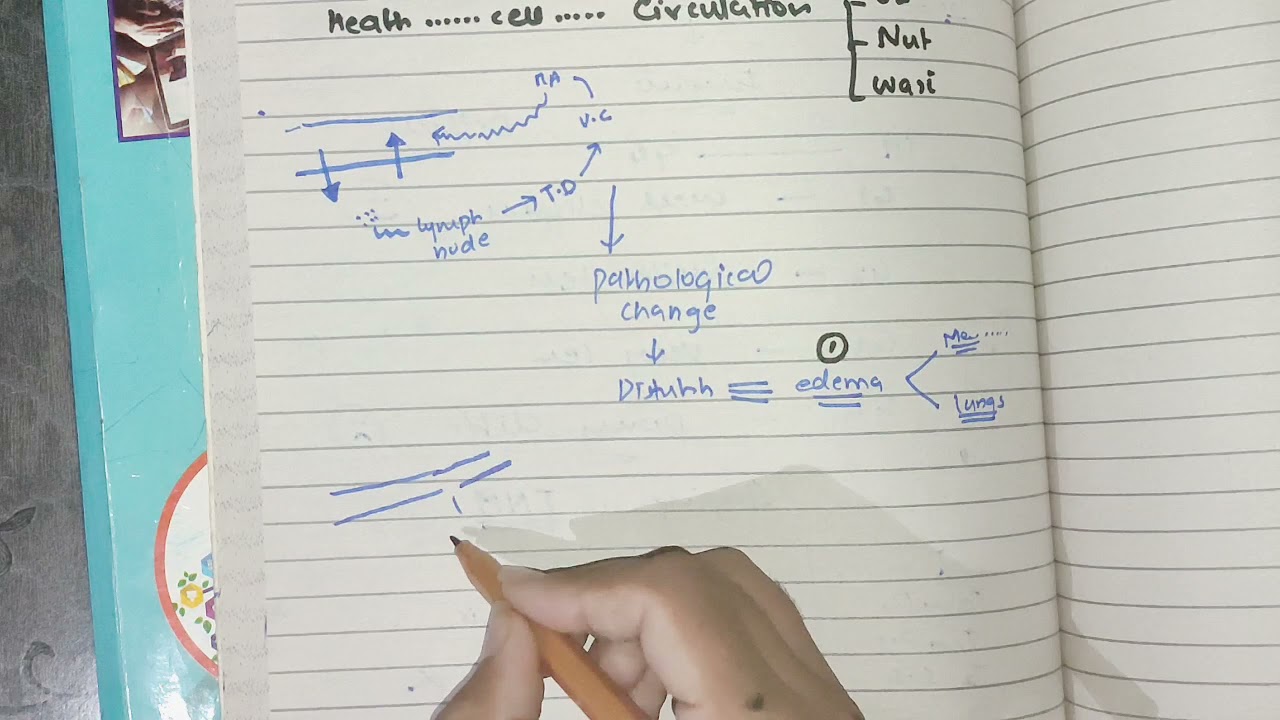 Health ...... cell ..... Circulation
Nut
wasi
RA
V.C
T.D
lymph
node
pathological
change
Disturbh
① 
edema
Me.....
lungs